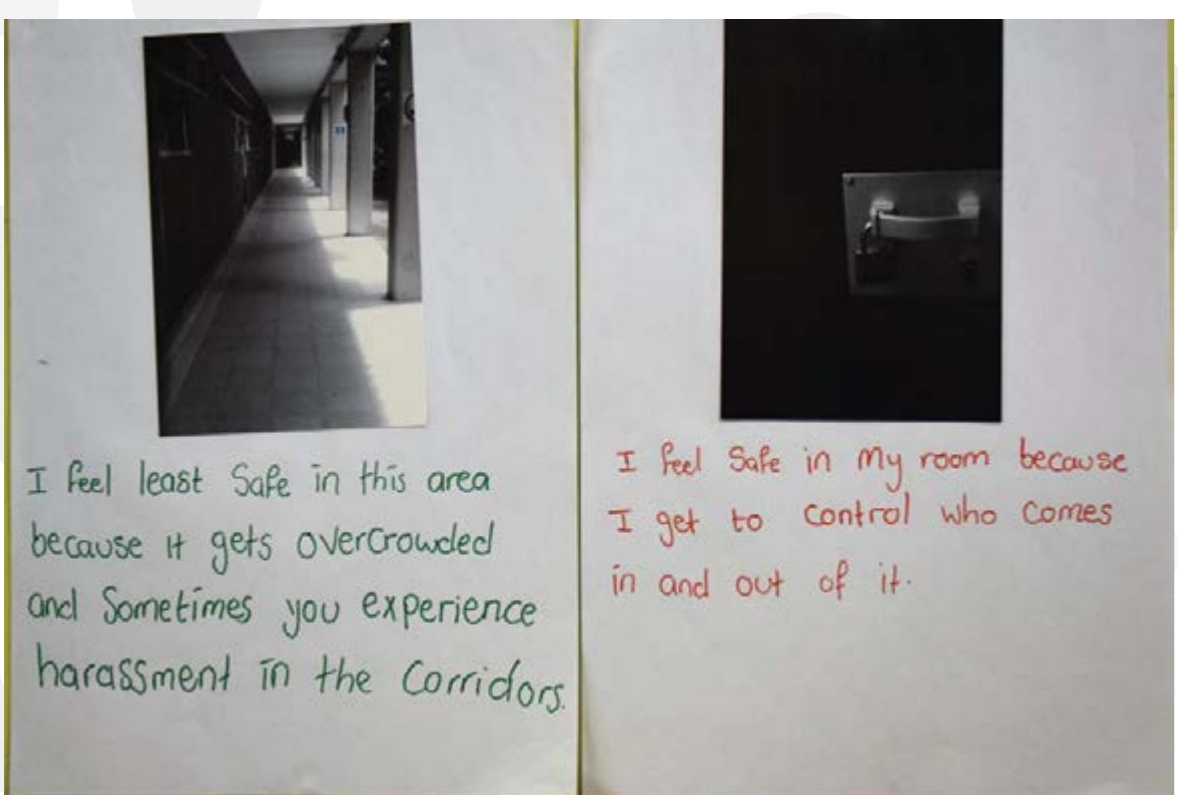 I feel least Safe in this area
because it gets overcrowded
and Sometimes you experience
harassment in the Corridors.
I feel Safe in my room because
I get to control who comes
in and out of it.